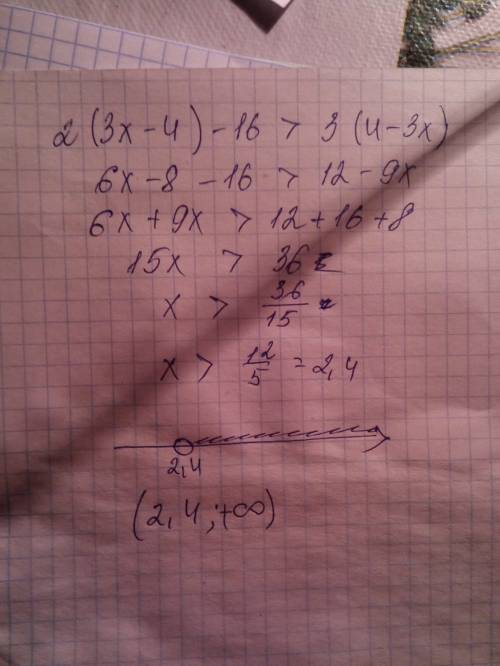 2(3x-4)-16 > 3(4-3x)
6x-8-16 > 12-9x
6x+9x > 12+16+8
15x > 36
x > 36/15
x > 12/5 = 2,4
2,4
(2,4;+∞)